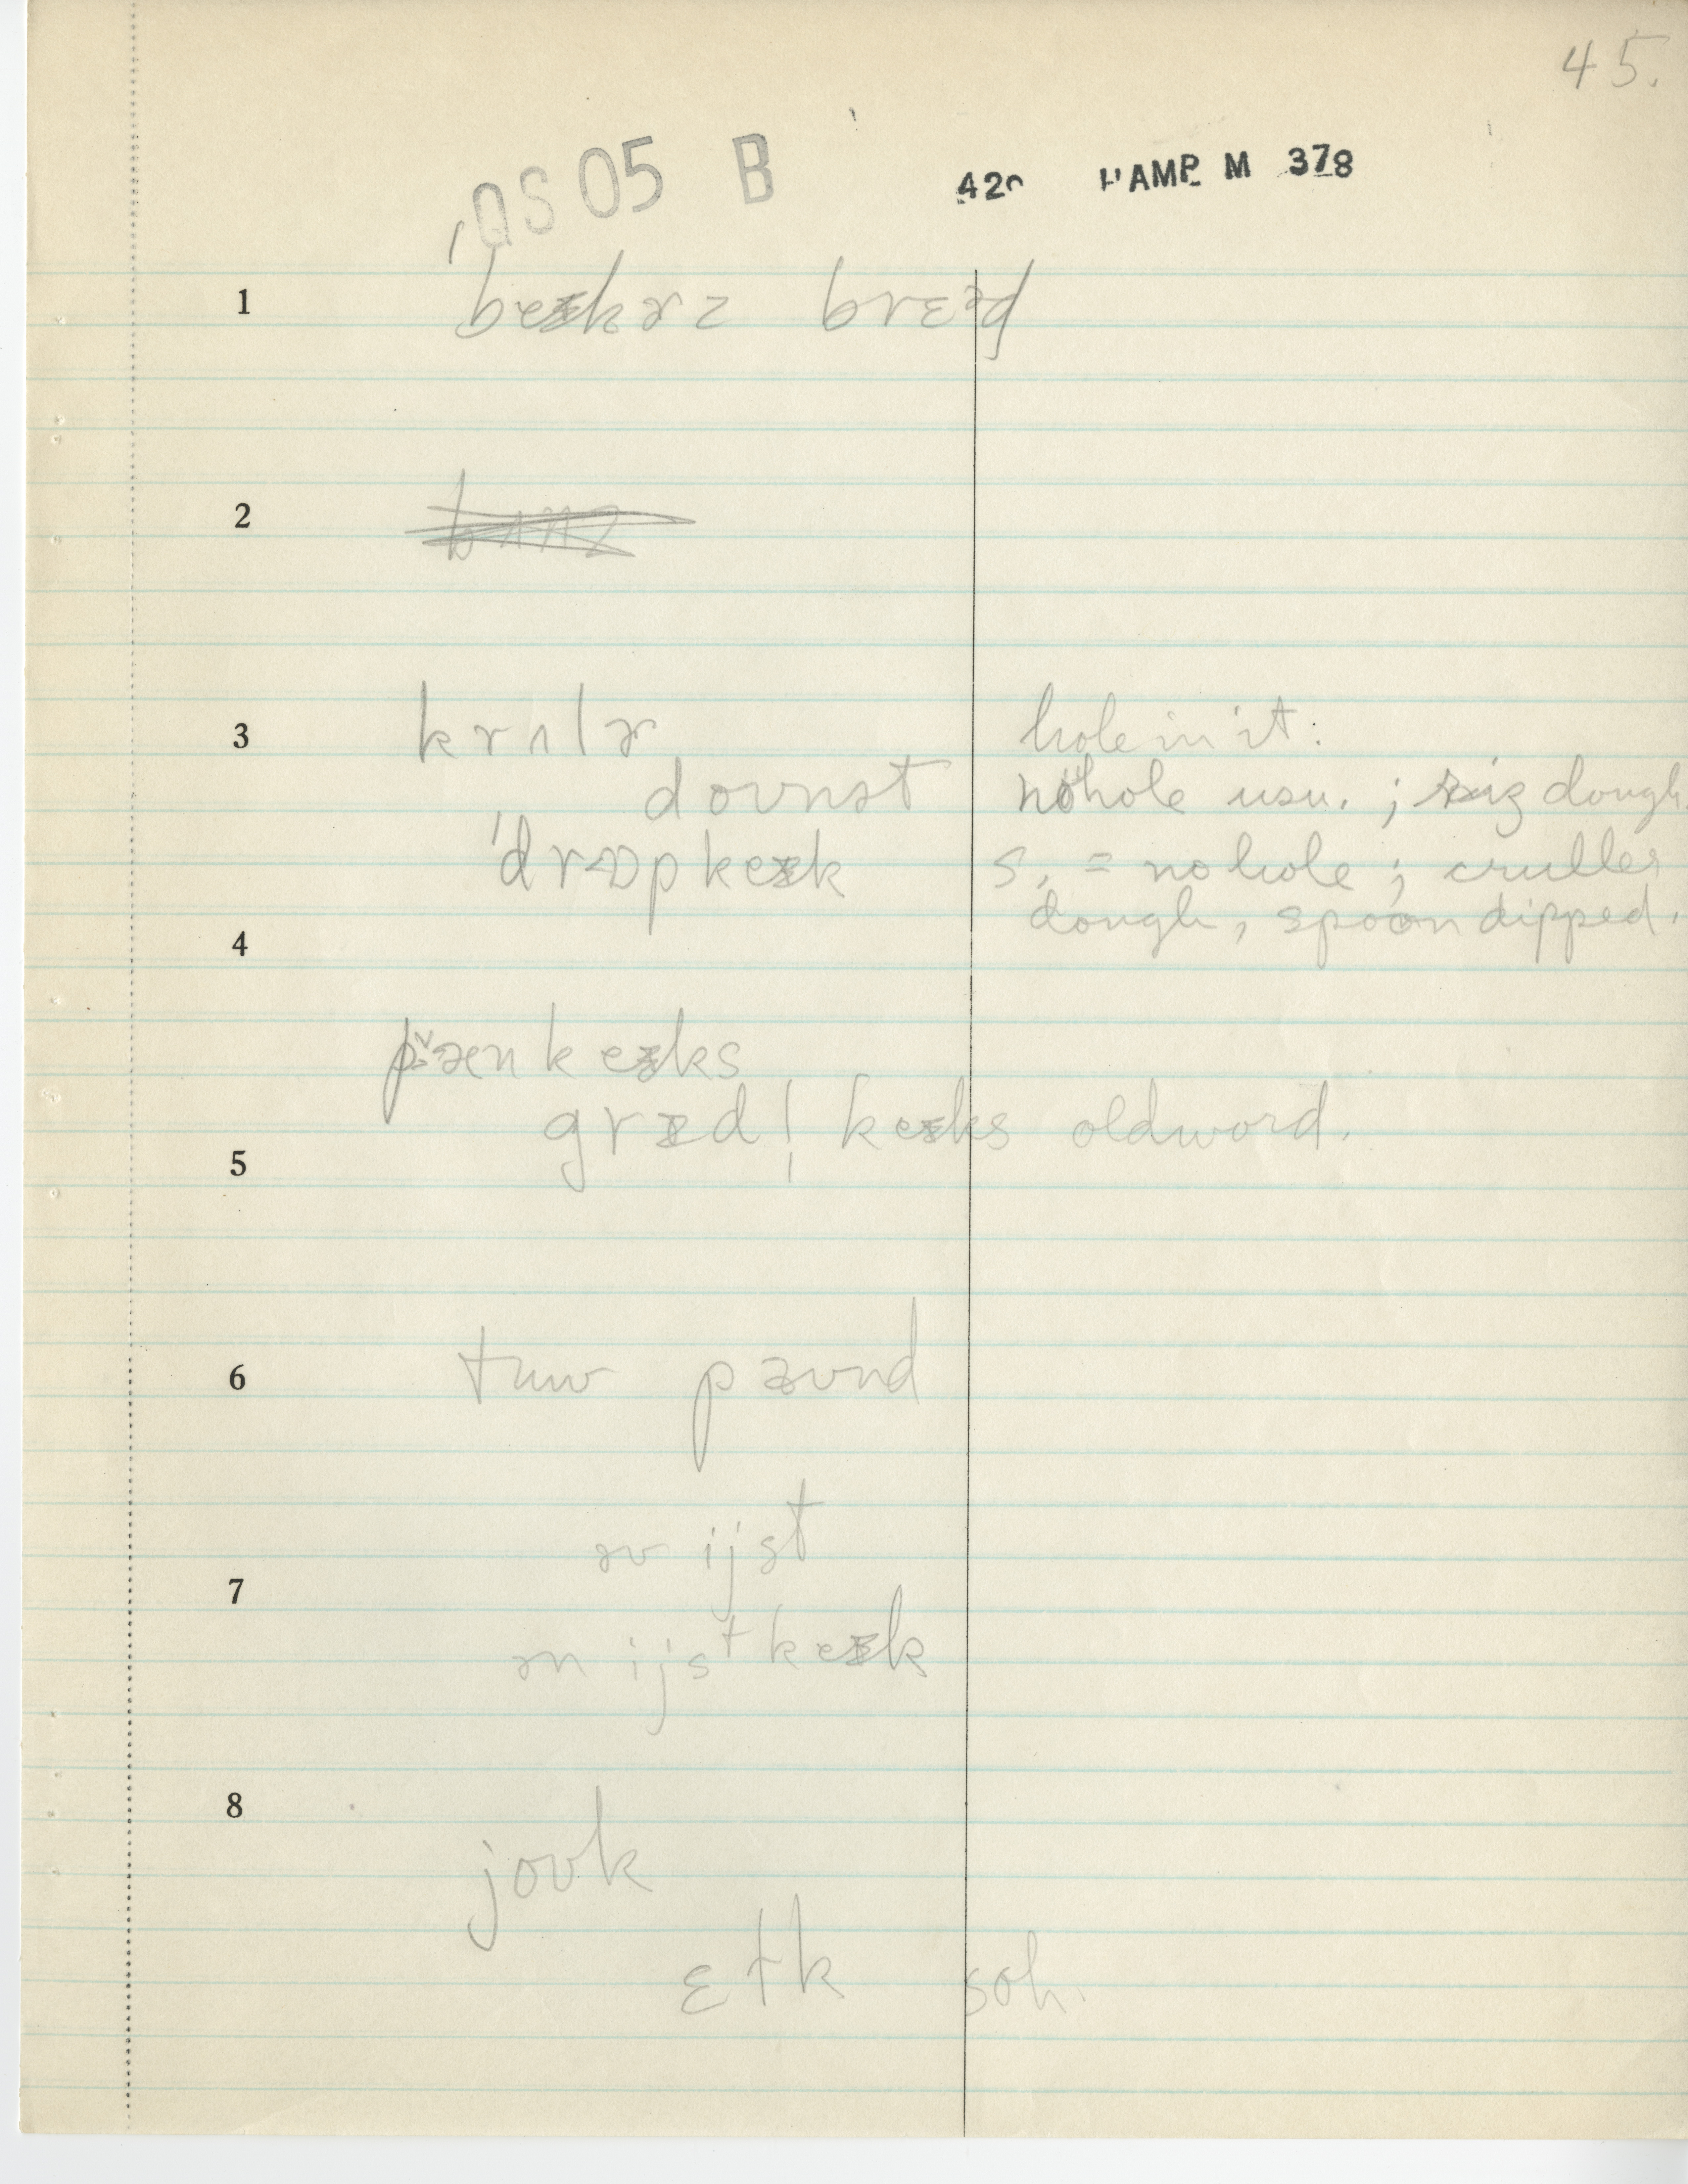 45.
QS 05 B 420 HAMP M 378
1 ˈbeɪkɚz brɛᵊd
2
3 krʌlɚ hole in it.
doʊnət no hole usu. ; riz dough.
ˈdrɒpkeɪk s. = no hole ; cruller
4 dough, spoon dipped.
pænkeɪks
grɪdl̩ keɪks old word.
5
6 tuw paʊnd
əv ijst
7
ən ijstkeɪk
8
joʊk
ɛtk soh.